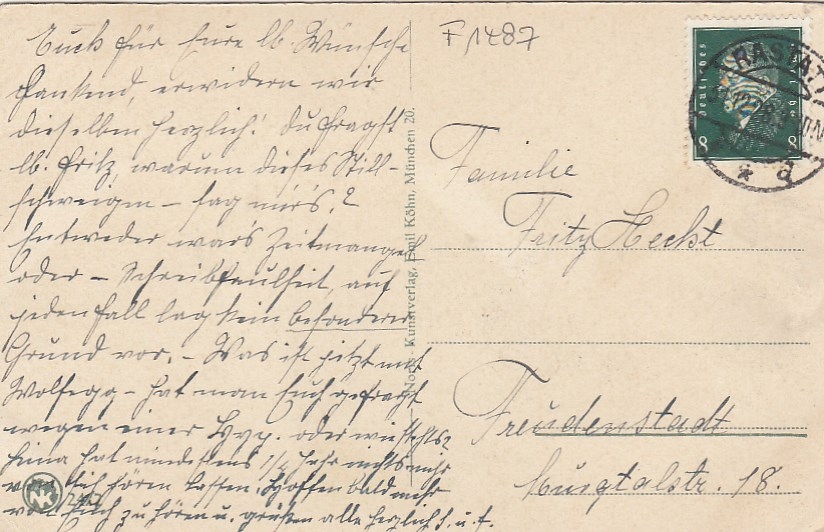 Euch für Eure lb. Wünsche
dankend, erwidern wir
dieselben herzlich! Du fragst
lb. Fritz, warum dieses Still-
schweigen – sag mir's?
Entweder war's Zeitmangel
oder – Schreibfaulheit, auf
jeden Fall lag kein besonderer
Grund vor. – Was ist jetzt mit
Wolfegg – hat man Euch gefragt
wegen einer Hyp. oder wie steht's?
hat mindestens 1/4 Jahr nichts mehr
von sich hören lassen. Hoffen bald mehr
von Euch zu hören u. grüßen alle herzlich
F 1487
Familie
Fritz Hecht
Freudenstadt
Murgtalstr. 18.
Deutsches
8 8
RASTATT
* a
Kunstverlag, Emil Köhn, München 20.
NK